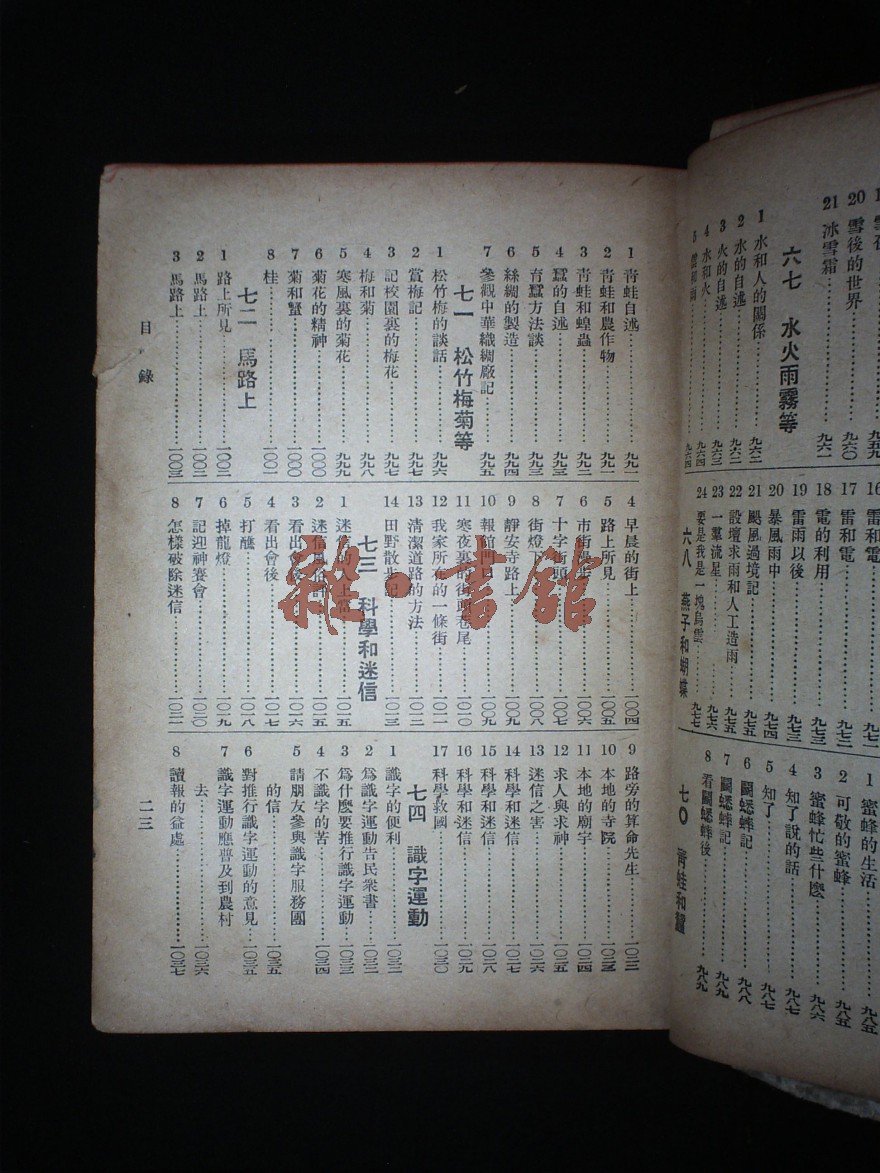 20 雪後的世界……九六〇
21 冰雪霜……九六一
六七 水火雨霧等
1 水和人的關係……九六二
2 水的自述……九六二
3 火的自述……九六三
4 水和火……九六四
17 雷和電
18 電的利用……九七三
19 雷雨以後……九七三
20 暴風雨中……九七四
21 颶風過境記……九七五
22 設壇求雨和人工造雨……九七五
23 一羣流星……九七六
24 要是我是一塊烏雲……九七七
六八 燕子和蝴蝶
1 蜜蜂的生活……九八五
2 可敬的蜜蜂……九八五
3 蜜蜂忙些什麼……九八六
4 知了說的話……九八七
5 知了……九八七
6 鬭蟋蟀記……九八八
7 鬭蟋蟀記……九八九
8 看鬭蟋蟀後……九八九
七〇 青蛙和蠶
1 青蛙自述……九九一
2 青蛙和農作物……九九一
3 青蛙和蝗蟲……九九二
4 蠶的自述……九九三
5 育蠶方法談……九九三
6 絲綢的製造……九九四
7 參觀中華織綢廠記……九九五
七一 松竹梅菊等
1 松竹梅的談話……九九六
2 賞梅記……九九七
3 記校園裏的梅花……九九七
4 梅和菊……九九八
5 寒風裏的菊花……九九九
6 菊花的精神……一〇〇〇
7 菊和蟹……一〇〇〇
8 桂……一〇〇一
七二 馬路上
1 路上所見……一〇〇二
2 馬路上……一〇〇二
3 馬路上……一〇〇三
4 早晨的街上……一〇〇四
5 路上所見……一〇〇五
6 市街漫步……一〇〇六
7 十字街頭……一〇〇七
8 街燈下……一〇〇八
9 靜安寺路上……一〇〇九
10 報館門口……一〇〇九
11 寒夜裏的街頭巷尾……一〇一〇
12 我家所在的一條街……一〇一一
13 清潔道路的方法……一〇一二
14 田野散步記……一〇一三
七三 科學和迷信
1 迷信的人上當……一〇一五
2 迷信風俗談……一〇一五
3 看出會……一〇一六
4 看出會後……一〇一七
5 打醮……一〇一八
6 掉龍燈……一〇一九
7 記迎神賽會……一〇二〇
8 怎樣破除迷信……一〇二一
9 路旁的算命先生……一〇二二
10 本地的寺院……一〇二三
11 本地的廟宇……一〇二四
12 求人與求神……一〇二五
13 迷信之害……一〇二六
14 科學和迷信……一〇二七
15 科學和迷信……一〇二八
16 科學和迷信……一〇二九
17 科學救國……一〇三〇
七四 識字運動
1 識字的便利……一〇三二
2 爲識字運動告民衆書……一〇三二
3 爲什麼要推行識字運動……一〇三三
4 不識字的苦……一〇三四
5 請朋友參與識字服務團
的信……一〇三五
6 對推行識字運動的意見……一〇三五
7 識字運動應普及到農村
去……一〇三六
8 讀報的益處……一〇三七
目錄
二三
雜·書館